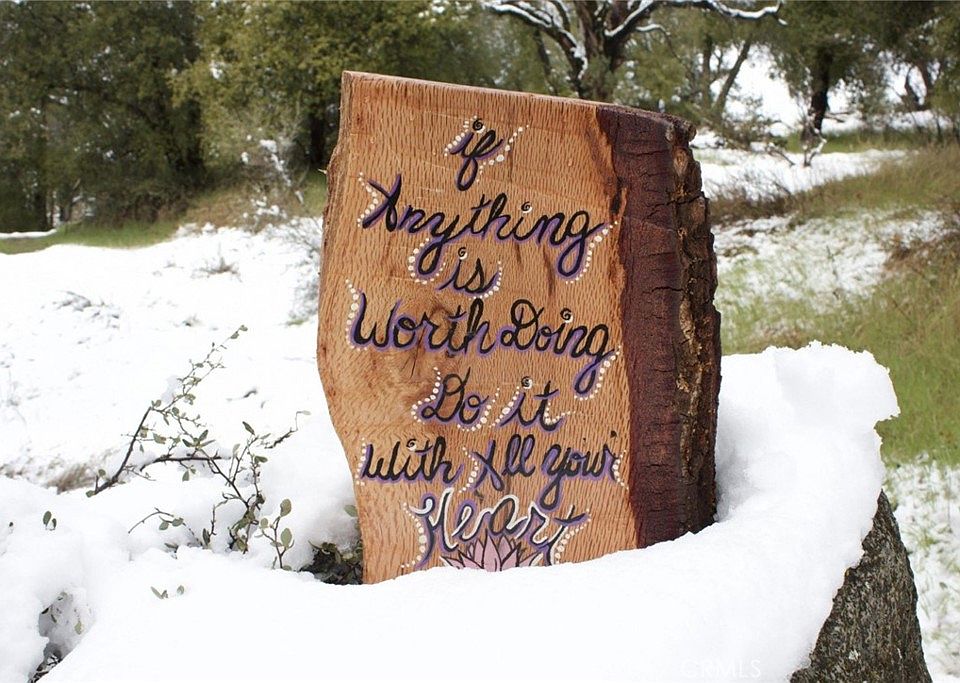 if
Anything
is
Worth Doing
Do it
With All your
Heart
CRMLS